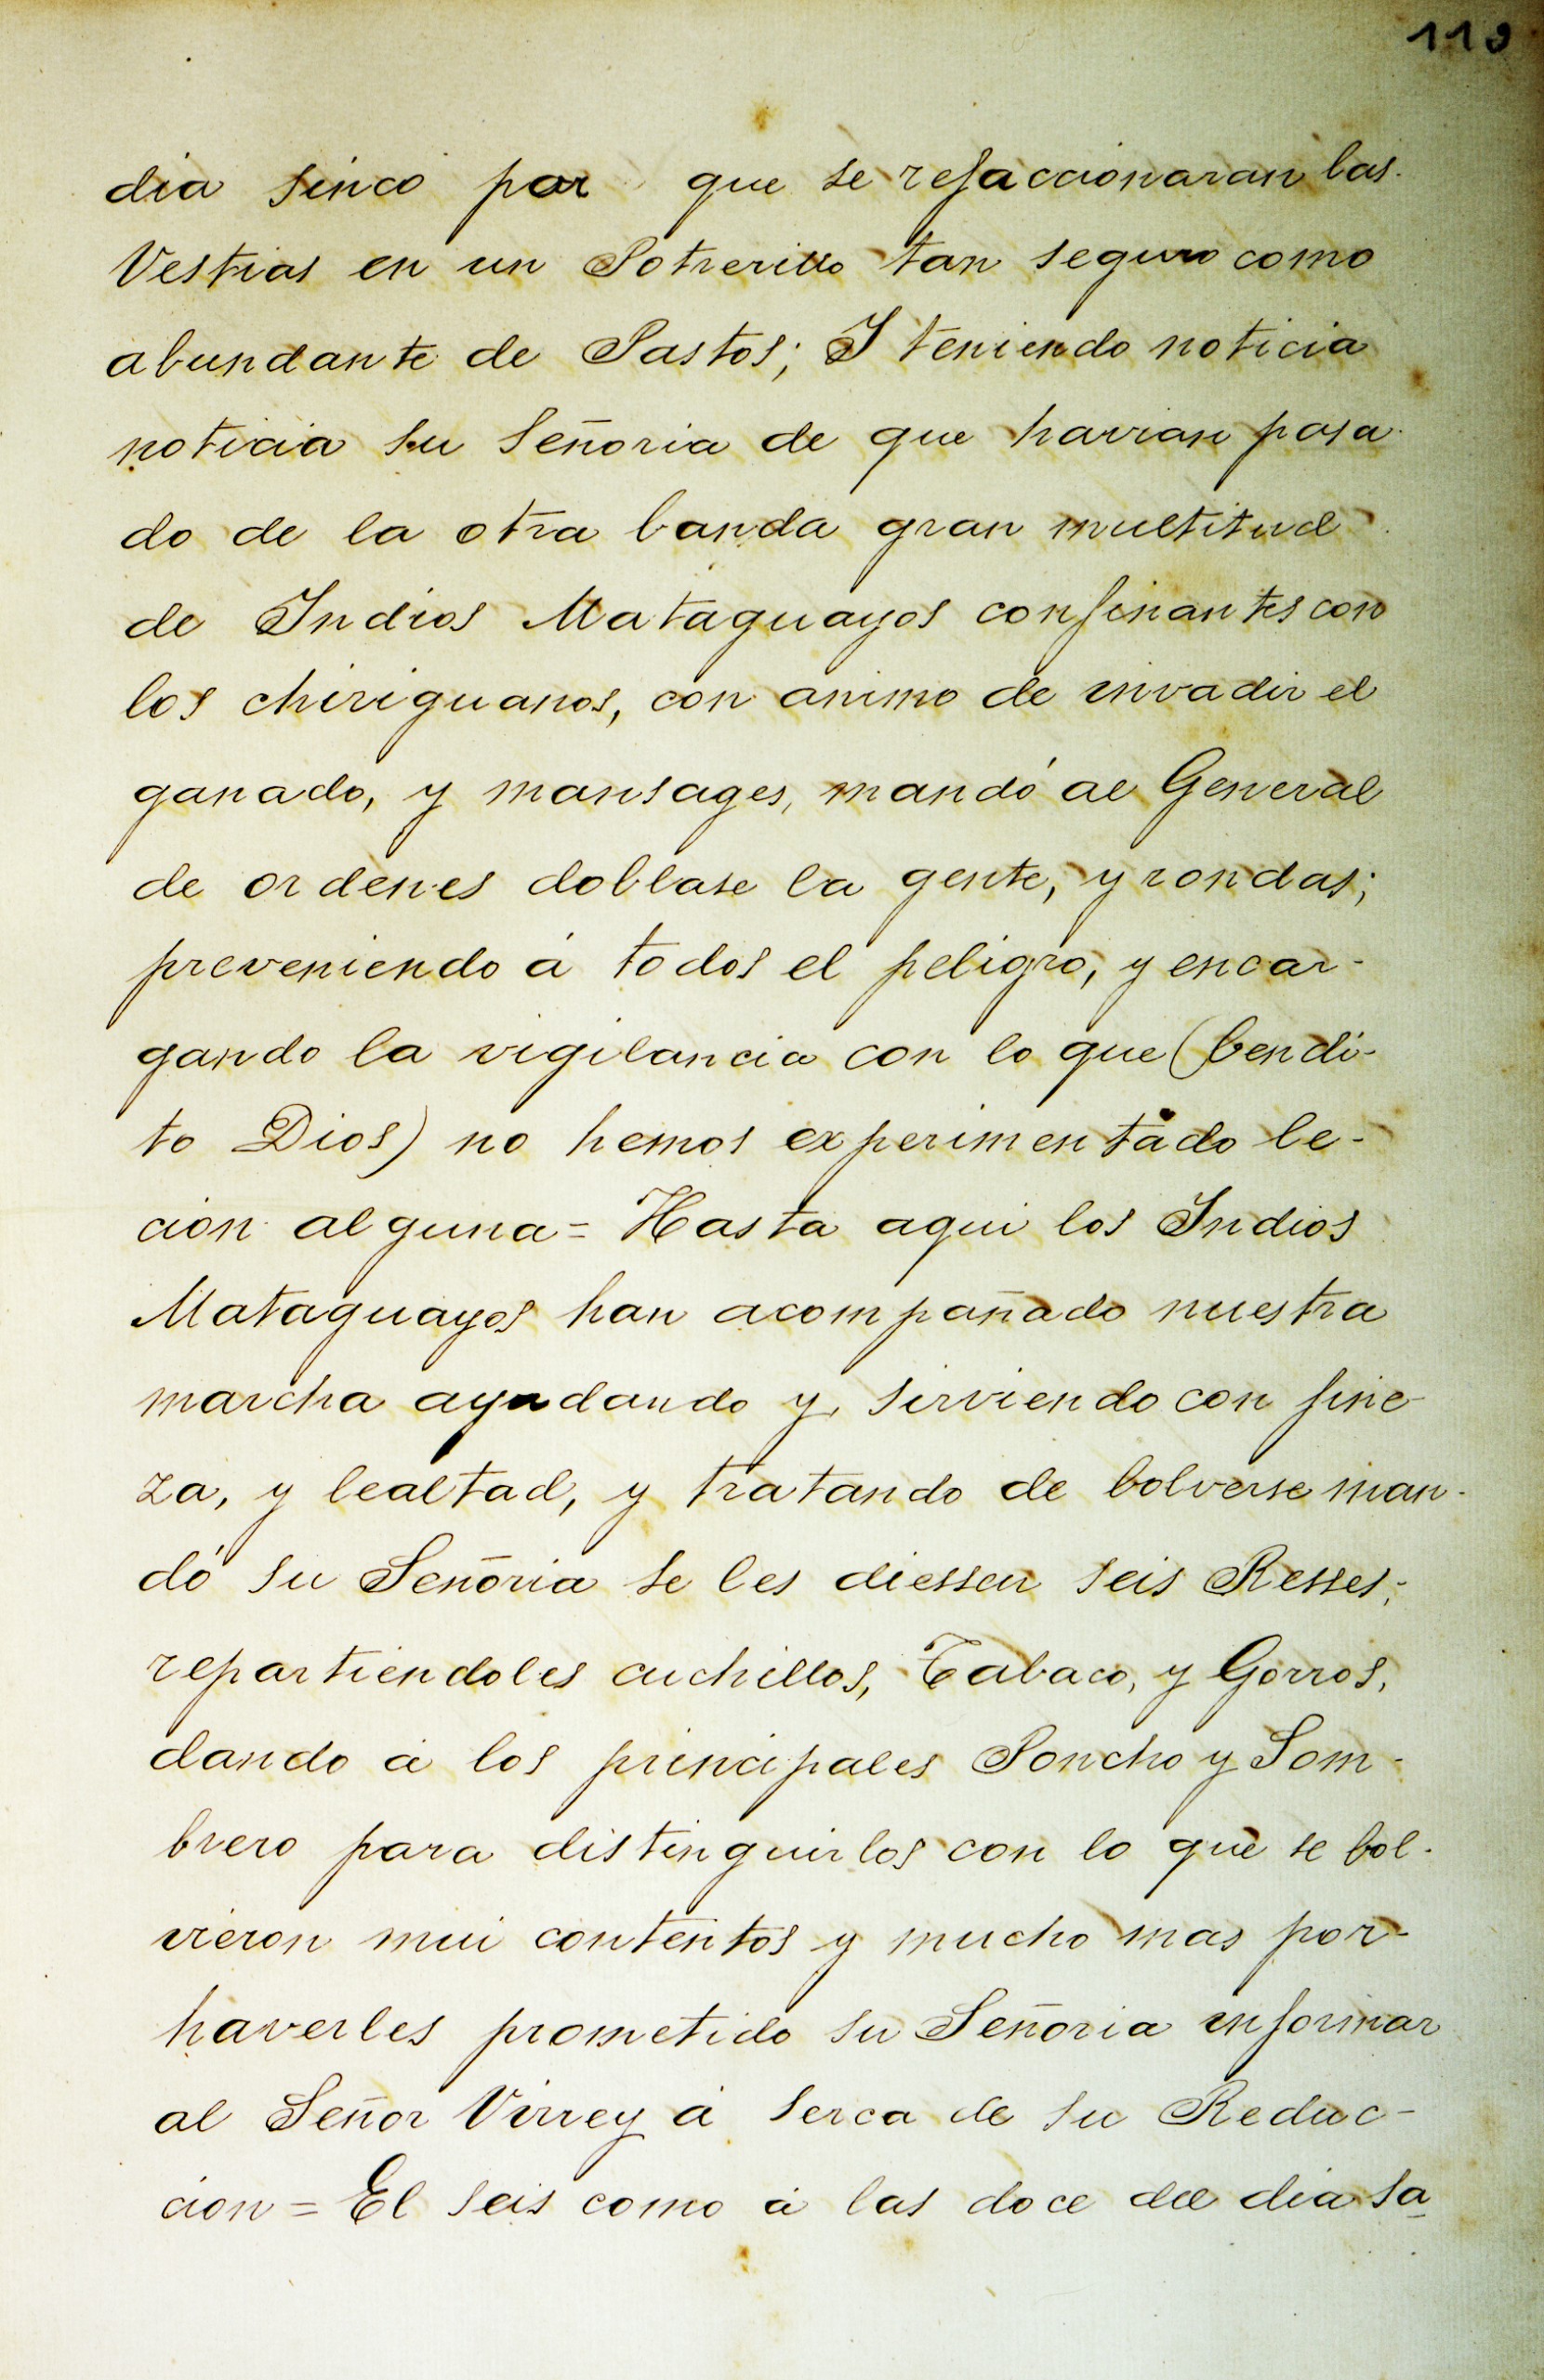 119
dia sinco por que se refaccionaran las
Vestias en un Potrerillo tan seguro como
abundante de Pastos; I teniendo noticia
noticia su Señoria de que havian pasa-
do de la otra banda gran multitud
de Indios Mataguayos confinantes con
los chiriguanos, con animo de invadir el
ganado, y mansages, mandó al General
de ordenes doblase la gente, y rondas;
preveniendo á todos el peligro, y encar-
gando la vigilancia con lo que (bendi-
to Dios) no hemos experimentado le-
cion alguna = Hasta aqui los Indios
Mataguayos han acompañado nuestra
marcha ayudando y sirviendo con fine-
za, y lealtad, y tratando de bolverse man-
dó su Señoria se les diessen seis Resses;
repartiendoles cuchillos, Tabaco, y Gorros,
dando á los principales Poncho y Som-
brero para distinguirlos con lo que se bol-
vieron mui contentos y mucho mas por-
haverles prometido su Señoria informar
al Señor Virrey á serca de su Reduc-
cion = El seis como á las doce del dia sa-